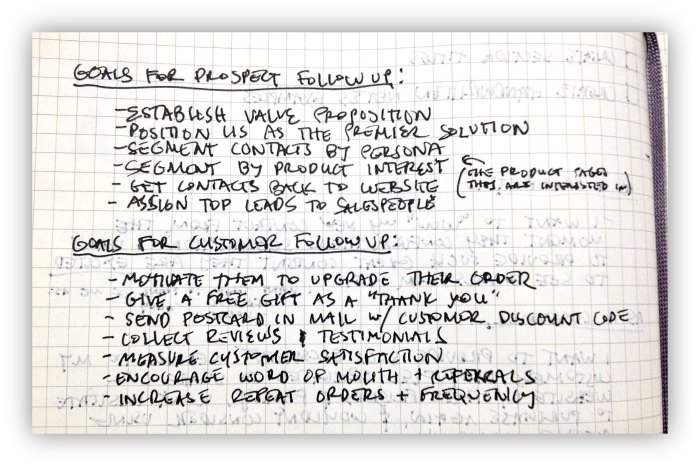 GOALS FOR PROSPECT FOLLOW UP:
- ESTABLISH VALUE PROPOSITION
- POSITION US AS THE PREMIER SOLUTION
- SEGMENT CONTACTS BY PERSONA
- SEGMENT BY PRODUCT INTEREST
(THE PRODUCT PAGES
THEY ARE INTERESTED IN)
- GET CONTACTS BACK TO WEBSITE
- ASSIGN TOP LEADS TO SALESPEOPLE
GOALS FOR CUSTOMER FOLLOW UP:
- MOTIVATE THEM TO UPGRADE THEIR ORDER
- GIVE A FREE GIFT AS A "THANK YOU"
- SEND POSTCARD IN MAIL W/ CUSTOMER DISCOUNT CODE
- COLLECT REVIEWS & TESTIMONIALS
- MEASURE CUSTOMER SATISFACTION
- ENCOURAGE WORD OF MOUTH + REFERRALS
- INCREASE REPEAT ORDERS + FREQUENCY